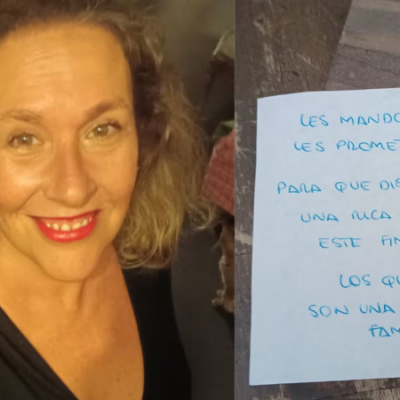 LES MANDO
LES PROME
PARA QUE DI
UNA RICA
ESTE
LOS QU
SON UNA
FAM